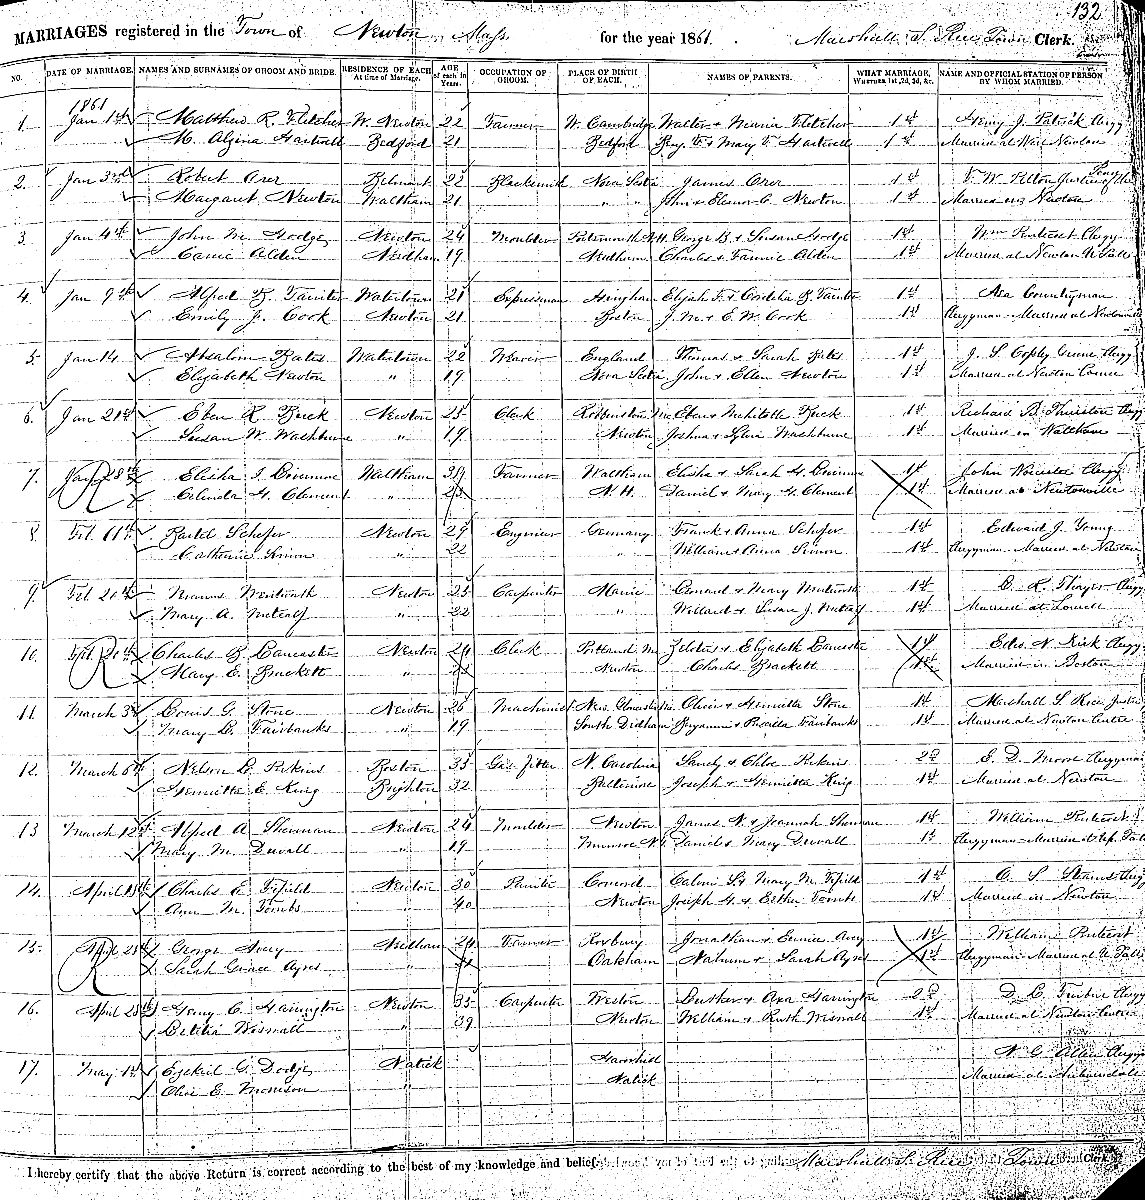 132
MARRIAGES registered in the Town of Newton, Mass. for the year 1861. Marshall S. Rice Town Clerk.
NO. DATE OF MARRIAGE. NAMES AND SURNAMES OF GROOM AND BRIDE. RESIDENCE OF EACH At time of Marriage. AGE of each in Years. OCCUPATION OF GROOM. PLACE OF BIRTH OF EACH. NAMES OF PARENTS. WHAT MARRIAGE, Whether 1st, 2d, 3d, &c. NAME AND OFFICIAL STATION OF PERSON BY WHOM MARRIED.
1861
1. Jan 1st Matthew R. Fletcher W. Newton 22 Farmer W. Cambridge Walter + Fletcher 1st Henry J. Patrick Clergy
M. Hartwell Bedford 21 Bedford Benj. F. + Mary F. Hartwell 1st Married at West Newton
2. Jan 3rd Robert Orer Belmont 22 Blacksmith Nova Scotia James Orer 1st F. W. Pelton Justice of the Peace
Margaret Newton Waltham 21 " " John + Eleanor C. Newton 1st Married in Newton
3. Jan 4th John M. Hodge Newton 24 Moulder Portsmouth N.H. George B. + Susan Hodge 1st Wm Pentecost Clergy
Carrie Alden Needham 19 Needham Charles + Fannie Alden 1st Married at Newton U. Falls
4. Jan 9th Alfred Tainter Watertown 21 Expressman Hingham Elijah F. + Cordelia B. Tainter 1st Asa Countryman
Emily J. Cook Newton 21 Boston J. M. + E. W. Cook 1st Clergyman - Married at Newtonville
5. Jan 14 Absalom Bates Watertown 22 Weaver England Thomas + Sarah Bates 1st J. S. Copley Greene Clergy
Elizabeth Newton " 19 Nova Scotia John + Ellen Newton 1st Married at Newton Corner
6. Jan 21st Eben R. Buck Newton 25 Clerk Robbinston Me Eben + Mehitable Buck 1st Richard B. Thurston Clergy
Susan W. Washburne " 19 Newton Joshua + Sylvia Washburne 1st Married in Waltham
7. Jan 28th Elisha Waltham 39 Farmer Waltham Elisha + Sarah H. 1st John Clergy
Celinda H. Clement " 23 N.H. Daniel + Mary H. Clement 1st Married at Newtonville
8. Feb. 11th Schofer Newton 29 Engineer Germany Frank + Anna Schofer 1st Edward J. Young
Catherine Simon " 22 " William + Anna Simon 1st Clergyman - Married at Newton
9. Feb 20th Wentworth Newton 25 Carpenter Maine + Mary Wentworth 1st Thayer Clergy
Mary A. Metcalf " 22 " Willard + Susan J. Metcalf 1st Married at Lowell
10. Feb. 20th Charles B. Lancaster Newton 29 Clerk Portland M + Elizabeth Lancaster 1st N. Kirk Clergy
Mary E. Brackett " Newton Charles Brackett 1st Married in Boston
11. March 3d Louis G. Stone Newton 26 Machinist New Gloucester Oliver + Henrietta Stone 1st Marshall S. Rice Justice
Mary Fairbanks " 19 South Dedham Benjamin + Fairbanks 1st Married at Newton Centre
12. March 6th Nelson Perkins Boston 35 Gas fitter N. Carolina Sandy + Chloe Perkins 2d E. D. Moore Clergyman
Henrietta E. King Brighton 32 Baltimore Joseph + Henrietta King 1st Married at Newton
13 March 12th Alfred A. Sherman Newton 24 Moulder Newton James N. + Jeannah Sherman 1st William Pentecost
Mary M. Duvall " 19 Daniel + Mary Duvall 1st Clergyman - Married at Up. Falls
14. April Charles Fifield Newton 30 Painter Concord Calvin + Mary M. Fifield 1st Clergy
Ann M. Tombs " 40 Newton Joseph H. + Esther Tombs 1st Married in Newton
15. April 21st George Avery Needham 24 Farmer Roxbury Jonathan + Eunice Avery 1st William Pentecost
Sarah Grace Ayres " 21 Oakham Nahum + Sarah Ayres 1st Clergyman - Married at U. Falls
16. April 28th Henry C. Harrington Newton 35 Carpenter Weston Luther + Harrington 2d Clergy
Letitia Wiswall " 39 Newton William + Ruth Wiswall 1st Married at Newton Centre
17. May 1st Ezekiel G. Dodge Natick Haverhill N. G. Allen Clergy
Olive E. Morrison " Natick Married at Auburndale
I hereby certify that the above Return is correct according to the best of my knowledge and belief. Marshall S. Rice Town Clerk.